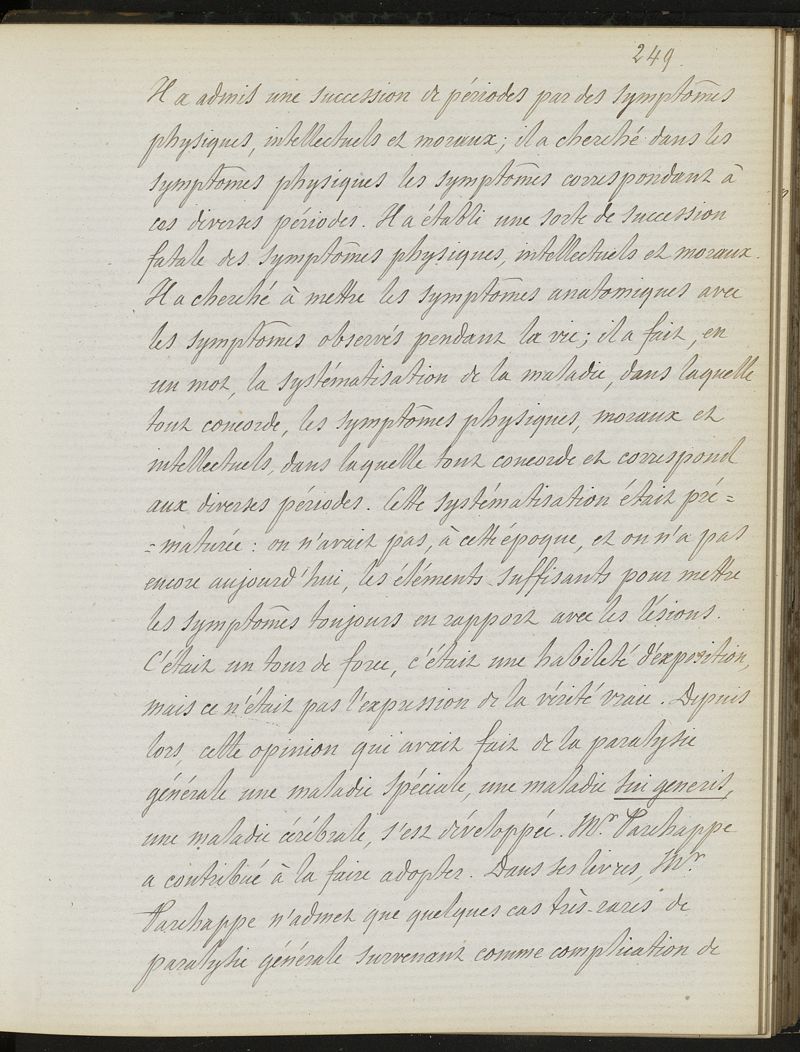 249.
Il a admis une succession de périodes par des symptômes
physiques, intellectuels et moraux; il a cherché dans les
symptômes physiques les symptômes correspondant à
ces diverses périodes. Il a établi une sorte de succession
fatale des symptômes physiques, intellectuels et moraux.
Il a cherché à mettre les symptômes anatomiques avec
les symptômes observés pendant la vie; il a fait, en
un mot, la systématisation de la maladie, dans laquelle
tout concorde, les symptômes physiques, moraux et
intellectuels, dans laquelle tout concorde et correspond
aux diverses périodes. Cette systématisation était pré=
=maturée: on n'avait pas, à cette époque, et on n'a pas
encore aujourd'hui, les éléments suffisants pour mettre
les symptômes toujours en rapport avec les lésions.
C'était un tour de force, c'était une habileté d'exposition,
mais ce n'était pas l'expression de la vérité vraie. Depuis
lors, cette opinion qui avait fait de la paralysie
générale une maladie spéciale, une maladie sui generis,
une maladie cérébrale, s'est développée. Mr Parchappe
a contribué à la faire adopter. Dans ses livres, Mr
Parchappe n'admet que quelques cas très-rares de
paralysie générale survenant comme complication de